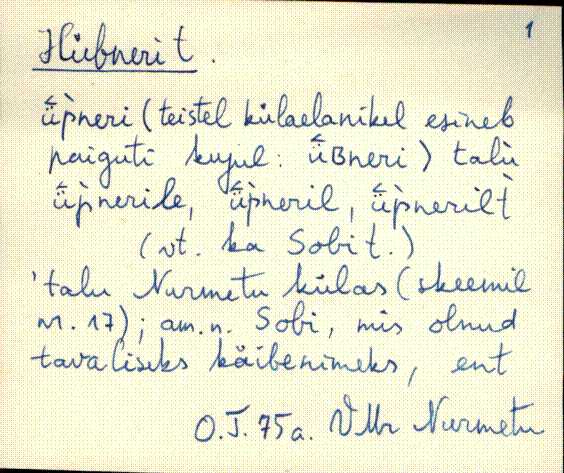 1
Hübneri t.
ǖp̀neri (teistel külaelanikel esineb
paiguti kujul: ǖBneri) talù
ǖp̀nerile, ǖp̀neril, ǖp̀nerilt̀
(vt. ka Sobi t.)
'talu Nurmetu külas (skeemil
nr. 17); am.n. Sobi, mis olnud
tavaliseks käibenimeks, ent
O.J. 75a. VMr Nurmetu